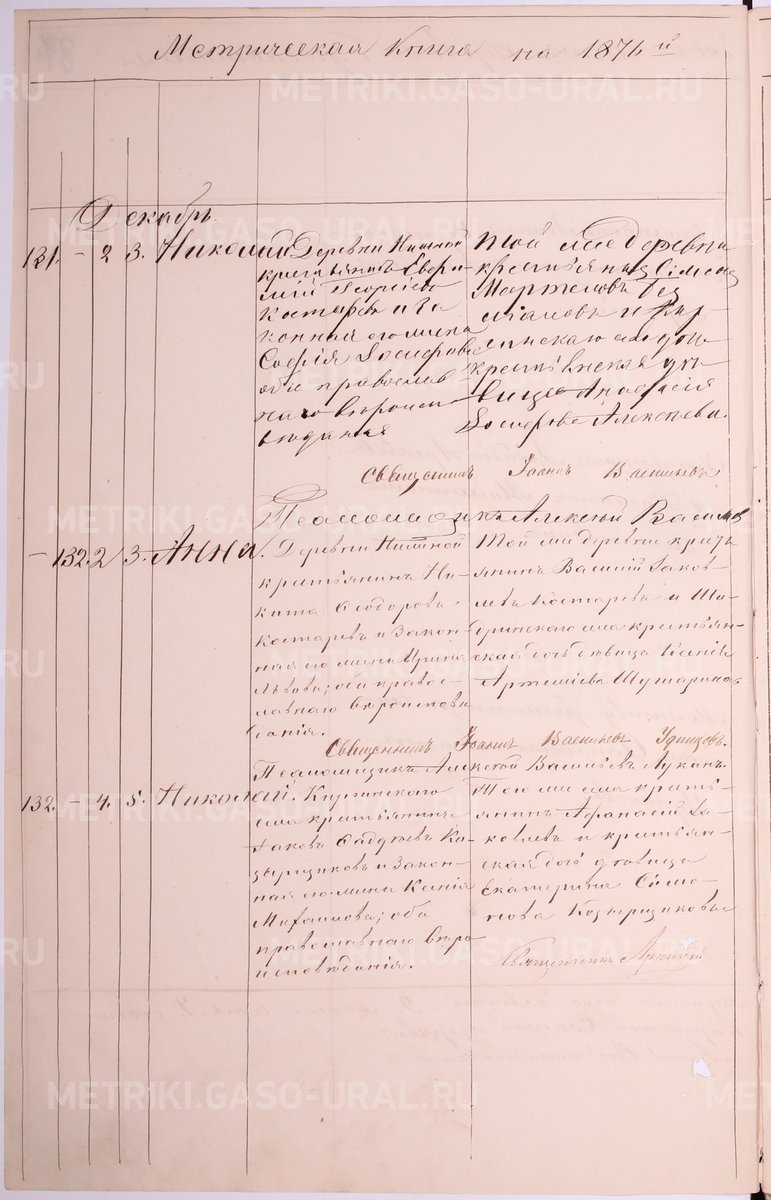 Метрическая Книга на 1876 й
Декабрь
131. – 2 3. Николай
Деревни Нижней
крестьянинъ Евге-
ній Георгіевъ
Костаревъ и За
конная его жена
Софія Іосифова
оба православ
наго вѣроиспо
вѣданія
Той же деревни
крестьянинъ Симеонъ
и
скаго села дочь
крестьянская дѣ
вица Анастасія
Іосифова Алексѣева.
Священникъ Іоаннъ Васильевъ
Псаломщикъ Алексѣй Васильевъ
– 132. 2 3 Анна.
Деревни Нижней
крестьянинъ Ни-
кита Ѳеодоровъ
Костаревъ и Закон-
ная его жена Ирина
Львова; оба правос-
лавнаго вѣроисповѣ
данія.
Той же деревни кресть
янинъ Василій Іаков-
левъ Костаревъ и Ша-
дринскаго села крестьян-
ская дочь дѣвица Ксенія
Артеміева Шушарина
Священникъ Іоаннъ Васильевъ Удинцовъ.
Псаломщикъ Алексѣй Васильевъ Лукинъ.
132. – 4. 5. Николай.
села крестьянинъ
Іаковъ Ѳаддеевъ Ко-
зырщиковъ и Закон-
ная его жена Ксенія
Михайлова; оба
православнаго вѣро
исповѣданія.
Того же села кресть-
янинъ Афанасій Іа-
ковлевъ и крестьян-
ская дочь дѣвица
Екатерина Симо-
нова Козырщиковы
Священникъ
METRIKI.GASO-URAL.RU